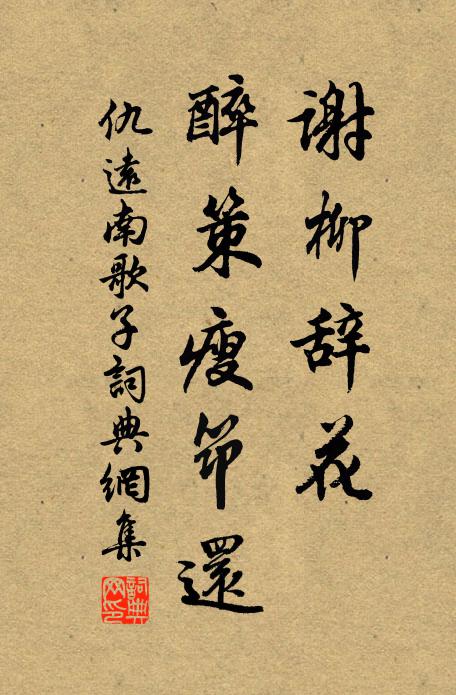 谢柳辞花
醉策瘦筇還
仇遠南歌子詞典網集
詞典
网印